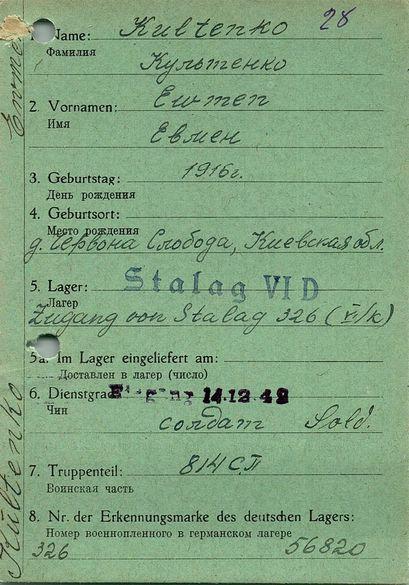 28
1. Name: Kultenko
Фамилия
Культенко
2. Vornamen: Ewmen
Имя
Евмен
3. Geburtstag: 1916г.
День рождения
4. Geburtsort:
Место рождения
д. Червона Слобода, Киевская обл.
5. Lager: Stalag VI D
Лагер
Zugang von Stalag 326 (VI/K)
5a. Im Lager eingeliefert am:
Доставлен в лагер (число)
6. Dienstgrad: 14.12.42
Чин
солдат Sold.
7. Truppenteil: 814 СП
Воинская часть
8. Nr. der Erkennungsmarke des deutschen Lagers:
Номер военнопленного в германском лагере
326 56820
Kultenko